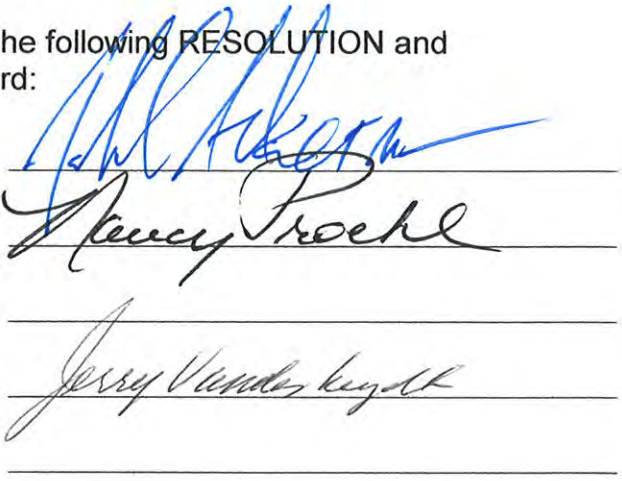 he following RESOLUTION and
rd:
Nancy Proehl
Jerry Vanderheydt